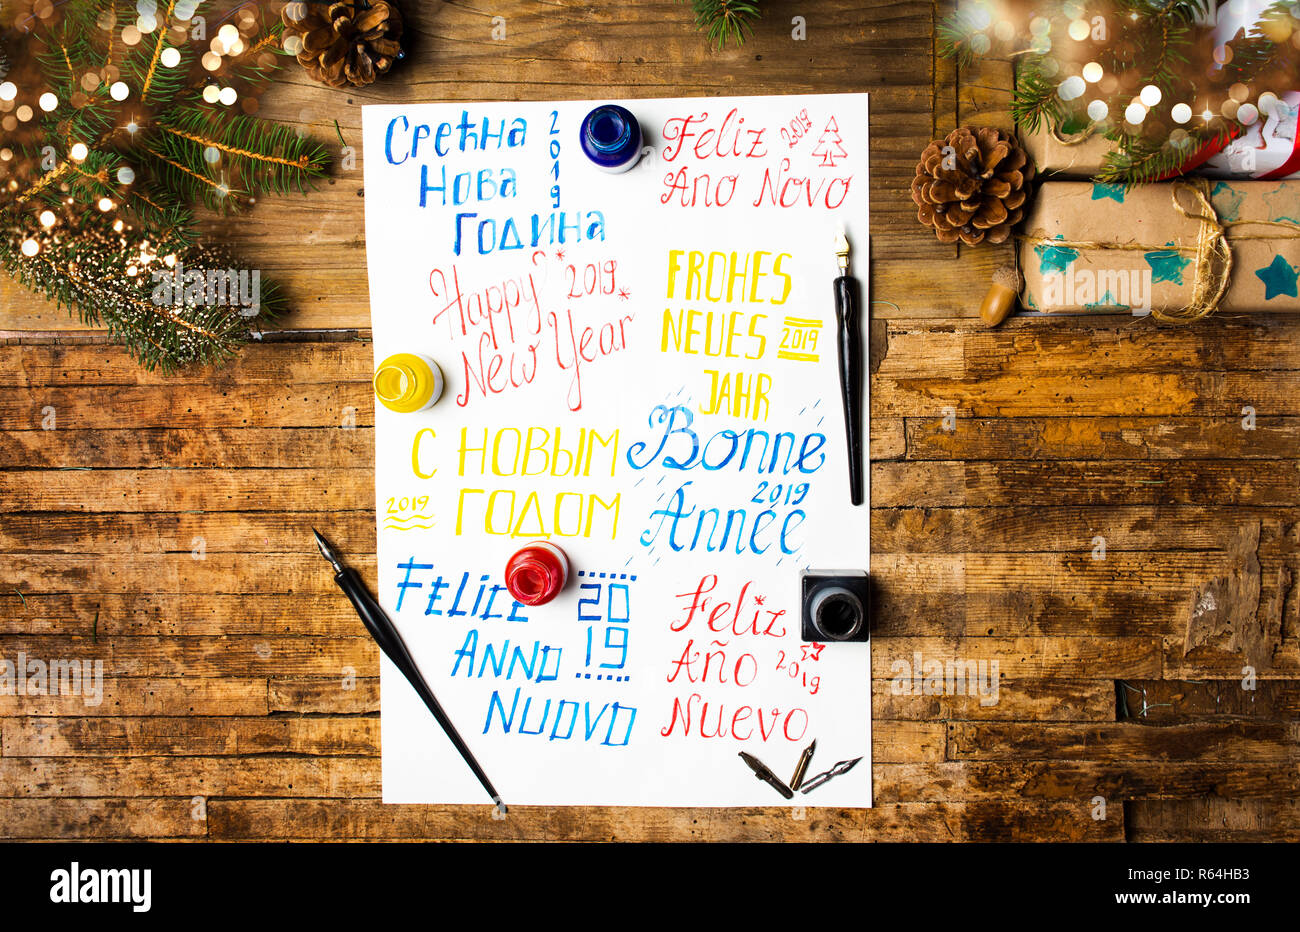 Срећна 2019
Нова
Година
Feliz 2019
Ano Novo
Happy 2019
New Year
FROHES
NEUES 2019
JAHR
С НОВЫМ
2019 ГОДОМ
Bonne
2019
Année
FELICE 20
ANNO 19
NUOVO
Feliz
Año 2019
Nuevo
alamy stock photo
R64HB3
www.alamy.com